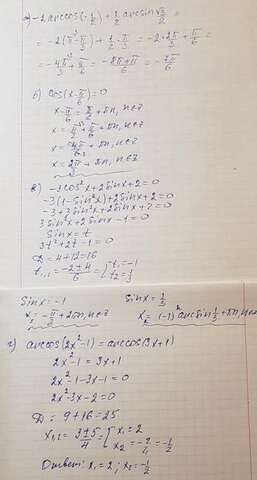 а) -2 arccos(-1/2) + 1/2 arcsin √3/2 =
= -2(π - π/3) + 1/2 · π/3 = -2 · 2π/3 + π/6 =
= -4π/3 + π/6 = -8π+π/6 = -7π/6
б) cos(x - π/6) = 0
x - π/6 = π/2 + πn, n∈Z
x = π/2 + π/6 + πn, n∈Z
x = 4π/6 + πn, n∈Z
x = 2π/3 + πn, n∈Z
в) -3cos²x + 2sinx + 2 = 0
-3(1 - sin²x) + 2sinx + 2 = 0
-3 + 3sin²x + 2sinx + 2 = 0
3sin²x + 2sinx - 1 = 0
Sinx = t
3t² + 2t - 1 = 0
D = 4 + 12 = 16
t₁,₂ = -2±4/6 = [t₁ = -1
t₂ = 1/3
Sinx = -1 Sinx = 1/3
x₁ = -π/2 + 2πn, n∈Z x₂ = (-1)ⁿ arcsin 1/3 + πn, n∈Z
г) arccos(2x² - 1) = arccos(3x + 1)
2x² - 1 = 3x + 1
2x² - 1 - 3x - 1 = 0
2x² - 3x - 2 = 0
D = 9 + 16 = 25
x₁,₂ = 3±5/4 = [x₁ = 2
x₂ = -2/4 = -1/2
Ответ: x₁ = 2; x₂ = -1/2